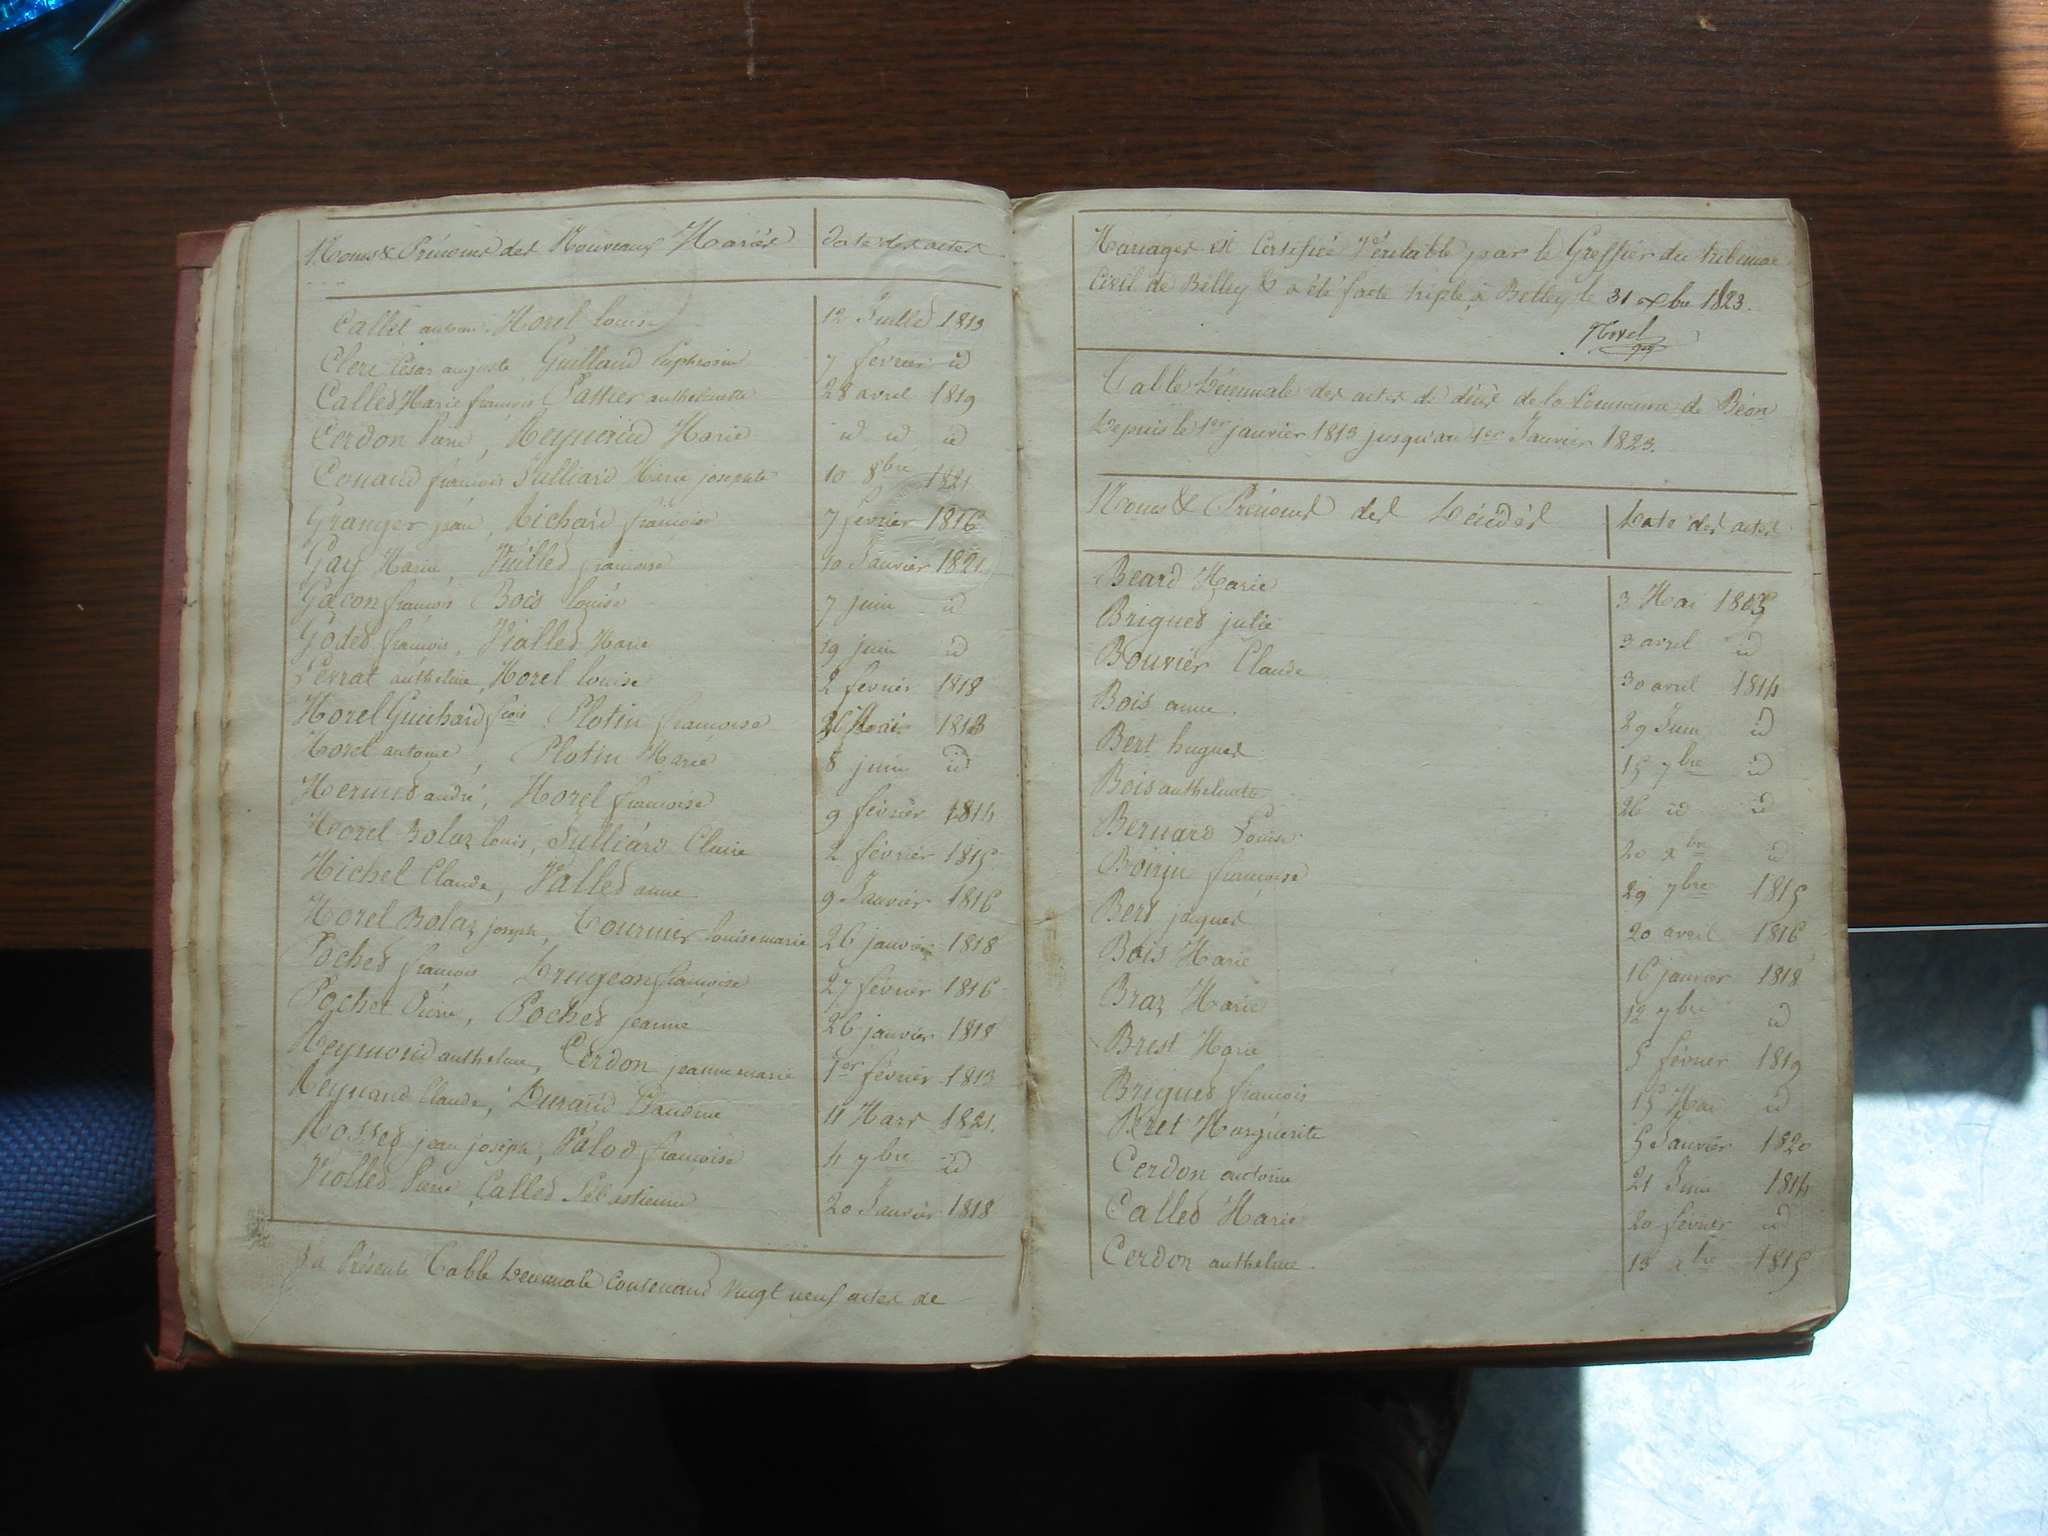 Noms & Prénoms des Nouveaux Mariés
date des actes
Callet Morel Louise
12 Juillet 1819
Clerc César auguste, Guilland
7 fevrier id
Called Marie françois Pattier anthelmette
28 avril 1819
Cerdon Pierre, Marie
id id id
Conand françois Julliard Marie josephte
10 8bre 1821
Granger jean, Richard françoise
7 février 1816
Gay Marie françoise
10 Janvier 1821
Gacon françois Bois louise
7 juin id
Goded françois, Violled Marie
19 juin id
Perrat anthelme, Morel louise
2 fevrier 1818
Morel Guichard fçois Plotin françoise
Mai
Morel antoine, Plotin Marie
8 juin id
andré, Morel françoise
9 février 1814
Morel Bolaz louis, Julliard Claire
2 février 1815
Michel Claude, Valled anne
9 Janvier 1816
Morel Bolaz joseph, Tournier louise marie
26 janvier 1818
Poched françois Drugeon françoise
27 février 1816
Pochet Pierre, Poched jeanne
26 janvier 1818
Reymond anthelme, Cerdon jeanne marie
1er février 1813
Reynand Claude, Durand
11 Mars 1821.
Rossed jean joseph, Palod françoise
4 7bre id
Violled Pierre Called Sébastienne
20 Janvier 1818
La Présente Table Décennale Contenand vingt neuf actes de
Mariages est Certifiée Véritable par le Greffier du tribunal
Civil de Belley & a été faite triple, à Belley le 31 xbre 1823.
Morel
Table Décennale des actes de décès de la Commune de Béon
Depuis le 1er janvier 1813 jusqu'au 1er Janvier 1823.
Noms & Prénoms des Décédés
Date des actes
Beard Marie
3 Mai 1813
Brigued julie
3 avril id
Bouvier Claude
30 avril 1814
Bois anne.
29 Juin id
Bert hugues
15 7bre id
Bois anthelmette
26 id id
Bernard Louise
20 id
Boirin françoise
29 7bre 1815
Bert jacques
20 avril 1816
Bois Marie
16 janvier 1818
Braz Marie
12 7bre id
Brest Marie
5 février 1819
Brigued françois
15 Mai id
Beret Marguérite
5 Janvier 1820
Cerdon antoine
21 Juin 1814
Called Marie
20 février id
Cerdon anthelme.
13 xbre 1815